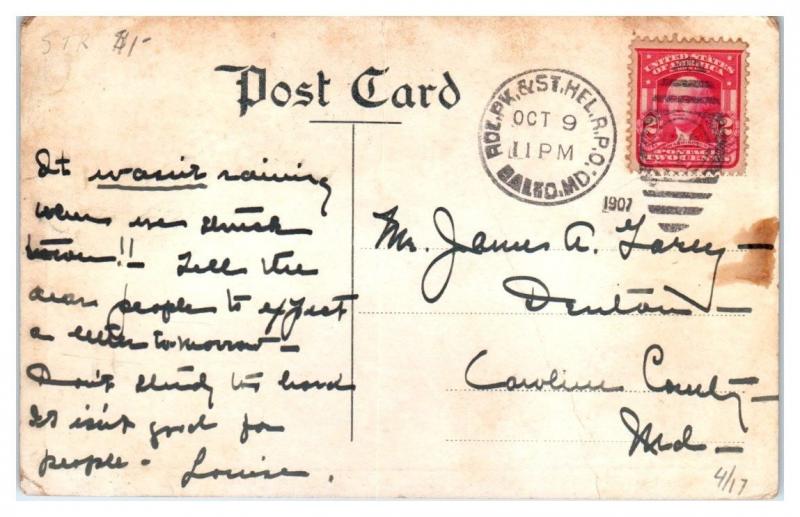 STR $1-
Post Card
ROL.PK.&ST.HEL.R.P.O.
OCT 9
11 PM
BALTO.MD.
1907
UNITED STATES
OF AMERICA
2 2
POSTAGE
TWO CENTS
It wasn't raining
when we struck
town!! - Tell the
dear people to expect
a letter to-morrow -
Don't study too hard
It isn't good for
people - Louise.
Mr. James A. Garey -
Denton -
Caroline County -
Md -
4/17